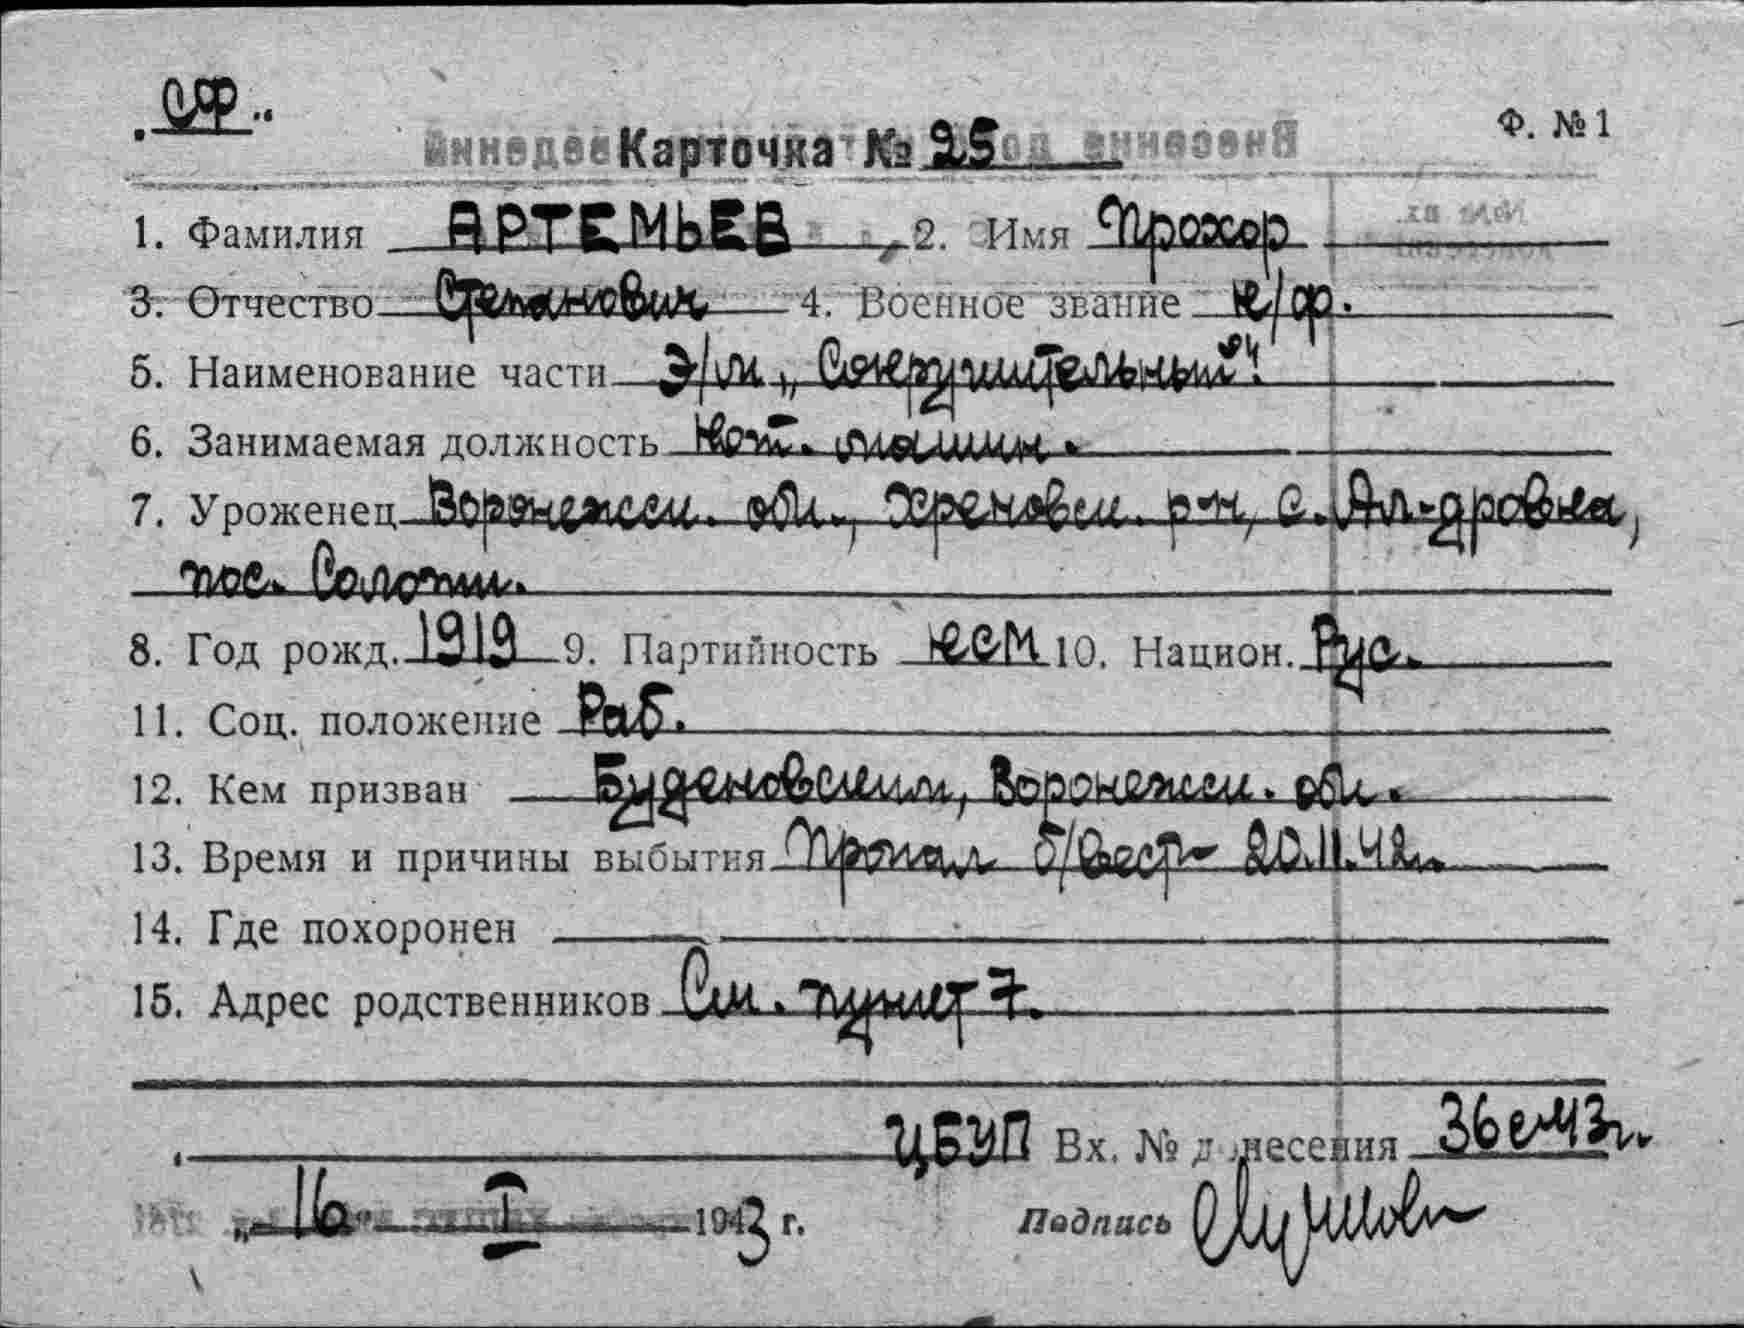 СФ.
Ф. № 1
Карточка № 25
1. Фамилия АРТЕМЬЕВ 2. Имя Прохор
3. Отчество Степанович 4. Военное звание к/ф.
5. Наименование части Э/м „Сокрушительный".
6. Занимаемая должность кот. машин.
7. Уроженец Воронежск. обл., Хреновск. р-н, с. Ал-дровка,
пос. Солотк.
8. Год рожд. 1919 9. Партийность ВЛКСМ 10. Национ. Рус.
11. Соц. положение Раб.
12. Кем призван Буденовским, Воронежск. обл.
13. Время и причины выбытия Пропал б/вест- 20.11.42г.
14. Где похоронен
15. Адрес родственников См. пункт 7.
ЦБУП Вх. № донесения 36с-43г.
„16" I 1943 г. Подпись